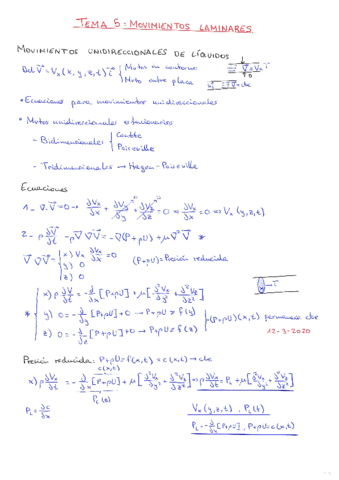 TEMA 5: MOVIMIENTOS LAMINARES
MOVIMIENTOS UNIDIRECCIONALES DE LÍQUIDOS
Vx(x, y, z, t) i
• Ecuaciones para movimientos unidireccionales
• Motos unidireccionales estacionarios
- Bidimensionales { Couette
Poiseuille
- Tridimensionales → Hagen-Poiseuille
Ecuaciones
1- ∇·V = 0 → ∂Vx/∂x + ∂Vy/∂y + ∂Vz/∂z = 0 ⇒ ∂Vx/∂x = 0 ⇒ Vx(y,z,t)
(P+ρU) = Presión reducida
x) ρ ∂V/∂t = -∂/∂x [P+ρU] + μ[∂²Vx/∂y² + ∂²Vx/∂z²]
* y) 0 = -∂/∂y [P+ρU] + 0 → P+ρU ≠ f(y)
z) 0 = -∂/∂z [P+ρU] + 0 → P+ρU ≠ f(z)
(P+ρU)(x,t) permanece cte
12-3-2020
Presión reducida: P+ρU = f(x,t) = c(x,t) → cte
c(x,t)
x) ρ ∂Vx/∂t = -∂/∂x [P+ρU] + μ[∂²Vx/∂y² + ∂²Vx/∂z²] → ρ ∂Vx/∂t = Pl + μ[∂²Vx/∂y² + ∂²Vx/∂z²]
Vx(y,z,t), Pl(t)
Pl = -∂/∂x [P+ρU], P+ρU = c(x,t)